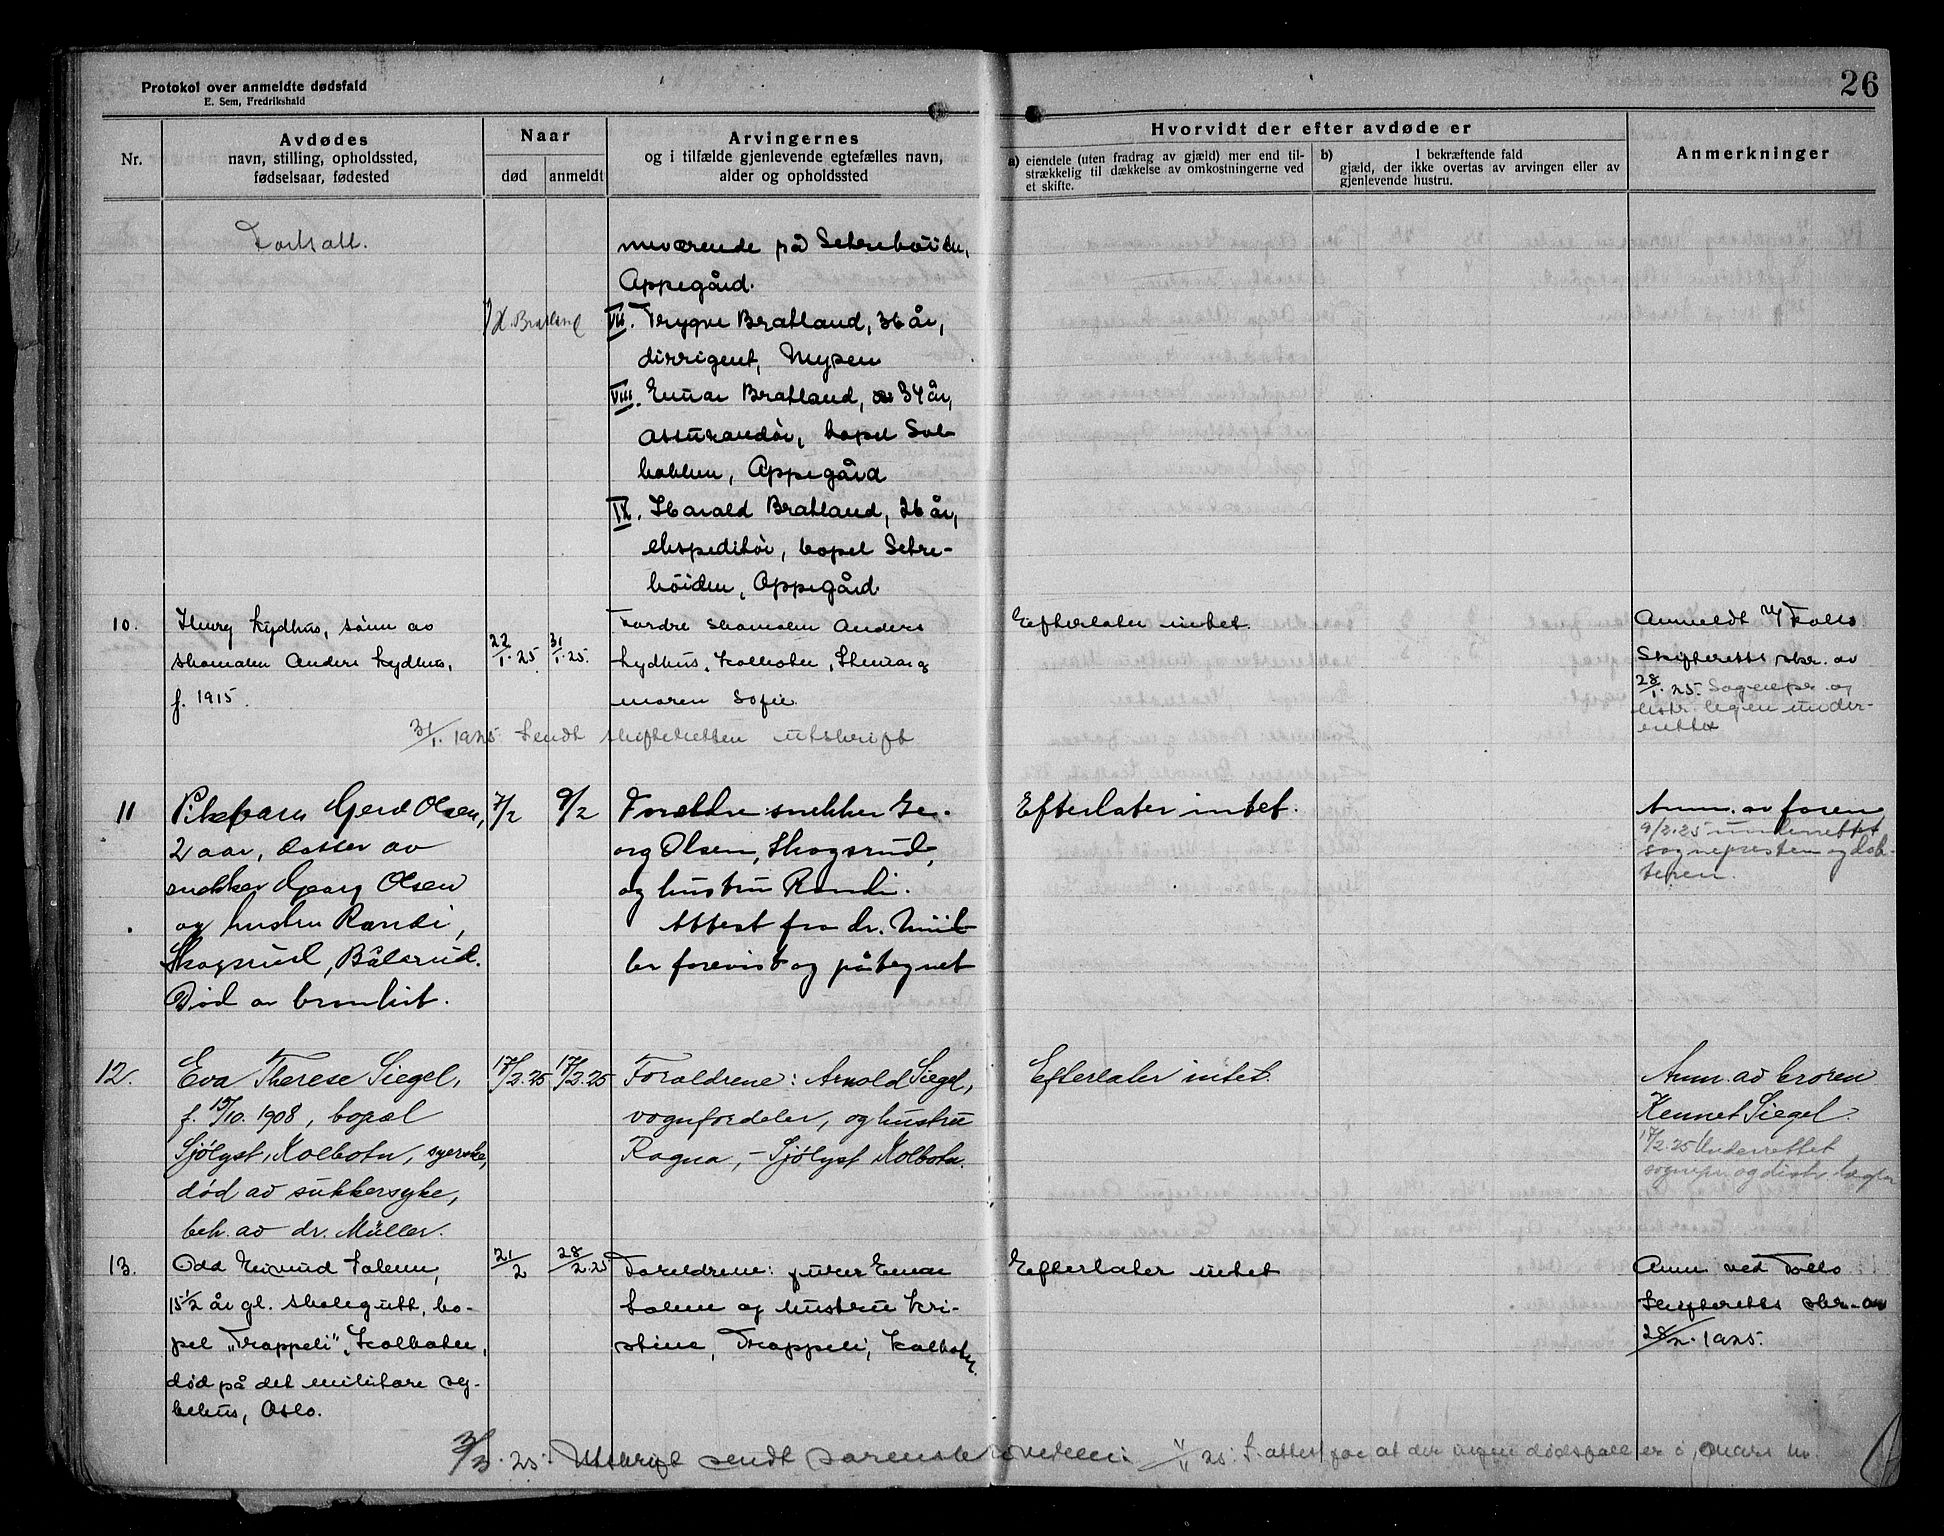 Protokol over anmeldte dødsfald
E. Sem, Fredrikshald
26
Nr.
Avdødes
navn, stilling, opholdssted,
fødselsaar, fødested
Naar
død
anmeldt
Arvingernes
og i tilfælde gjenlevende egtefælles navn,
alder og opholdssted
Hvorvidt der efter avdøde er
a) eiendele (uten fradrag av gjæld) mer end til-
strækkelig til dækkelse av omkostningerne ved
et skifte.
b) I bekræftende fald
gjæld, der ikke overtas av arvingen eller av
gjenlevende hustru.
Anmerkninger
Bratland
nuværende på Setrehöiden,
Oppegård.
VII. Trygve Bratland, 36 år,
dirrigent, Mysen
VIII. Einar Bratland, 34 år,
assurandör, bopel Sol-
bakken, Oppegård
IX. Harald Bratland, 26 år,
ekspeditör, bopel Setre-
höiden, Oppegård.
10.
Henry Lydhus, sönn av
skomaker Anders Lydhus,
f. 1915.
22/1.25
31/1.25.
Foreldre skomaker Anders
Lydhus, Kolbotn,
Maren Sofie
Efterlater intet.
Anmeldt v/ Follo
Skifteretts skr. av
28/1.25. Sognepr. og
distr. legen under-
rettet
31/1.1925 Sendt skifteretten utskrift
11
Pikebarn Gerd Olsen,
2 aar, datter av
snekker Georg Olsen
og hustru Randi,
Skogsrud, Bålerud.
Död av bronkit.
7/2
9/2
Forældre: snekker Ge-
org Olsen, Skogsrud,
og hustru Randi.
Attest fra dr. Mül-
ler forevist og påtegnet
Efterlater intet.
Anm. av faren
9/2.25 underrettet
sognepresten og dok-
teren.
12.
Eva Therese Siegel,
f. 15/10. 1908, bopæl
Sjölyst, Kolbotn, syerske,
död av sukkersyke,
beh. av dr. Müller.
17/2.25
17/2.25
Foræl­drene: Arnold Siegel,
vognfordeler, og hustru
Ragna, - Sjölyst Kolbotn.
Efterlater intet.
Anm. av broren
Kennet Siegel.
17/2.25 Underrettet
sognepr og distr. lægen
13.
Odd Eivind Solem,
15 1/2 år gl. skolegutt, bo-
pel "Trappeli", Kolbotn,
död på det militære sy-
kehus, Oslo.
21/2
28/2.25
Foreldrene: Einar
Solem og hustru Kri-
stine, Trappeli, Kolbotn.
Efterlater intet
Anm. ved Follo
Skifteretts skr. av
28/2.1925.
3/3.25. Utskrift sendt sorenskriveren. attest på at der ingen dödsfall er i